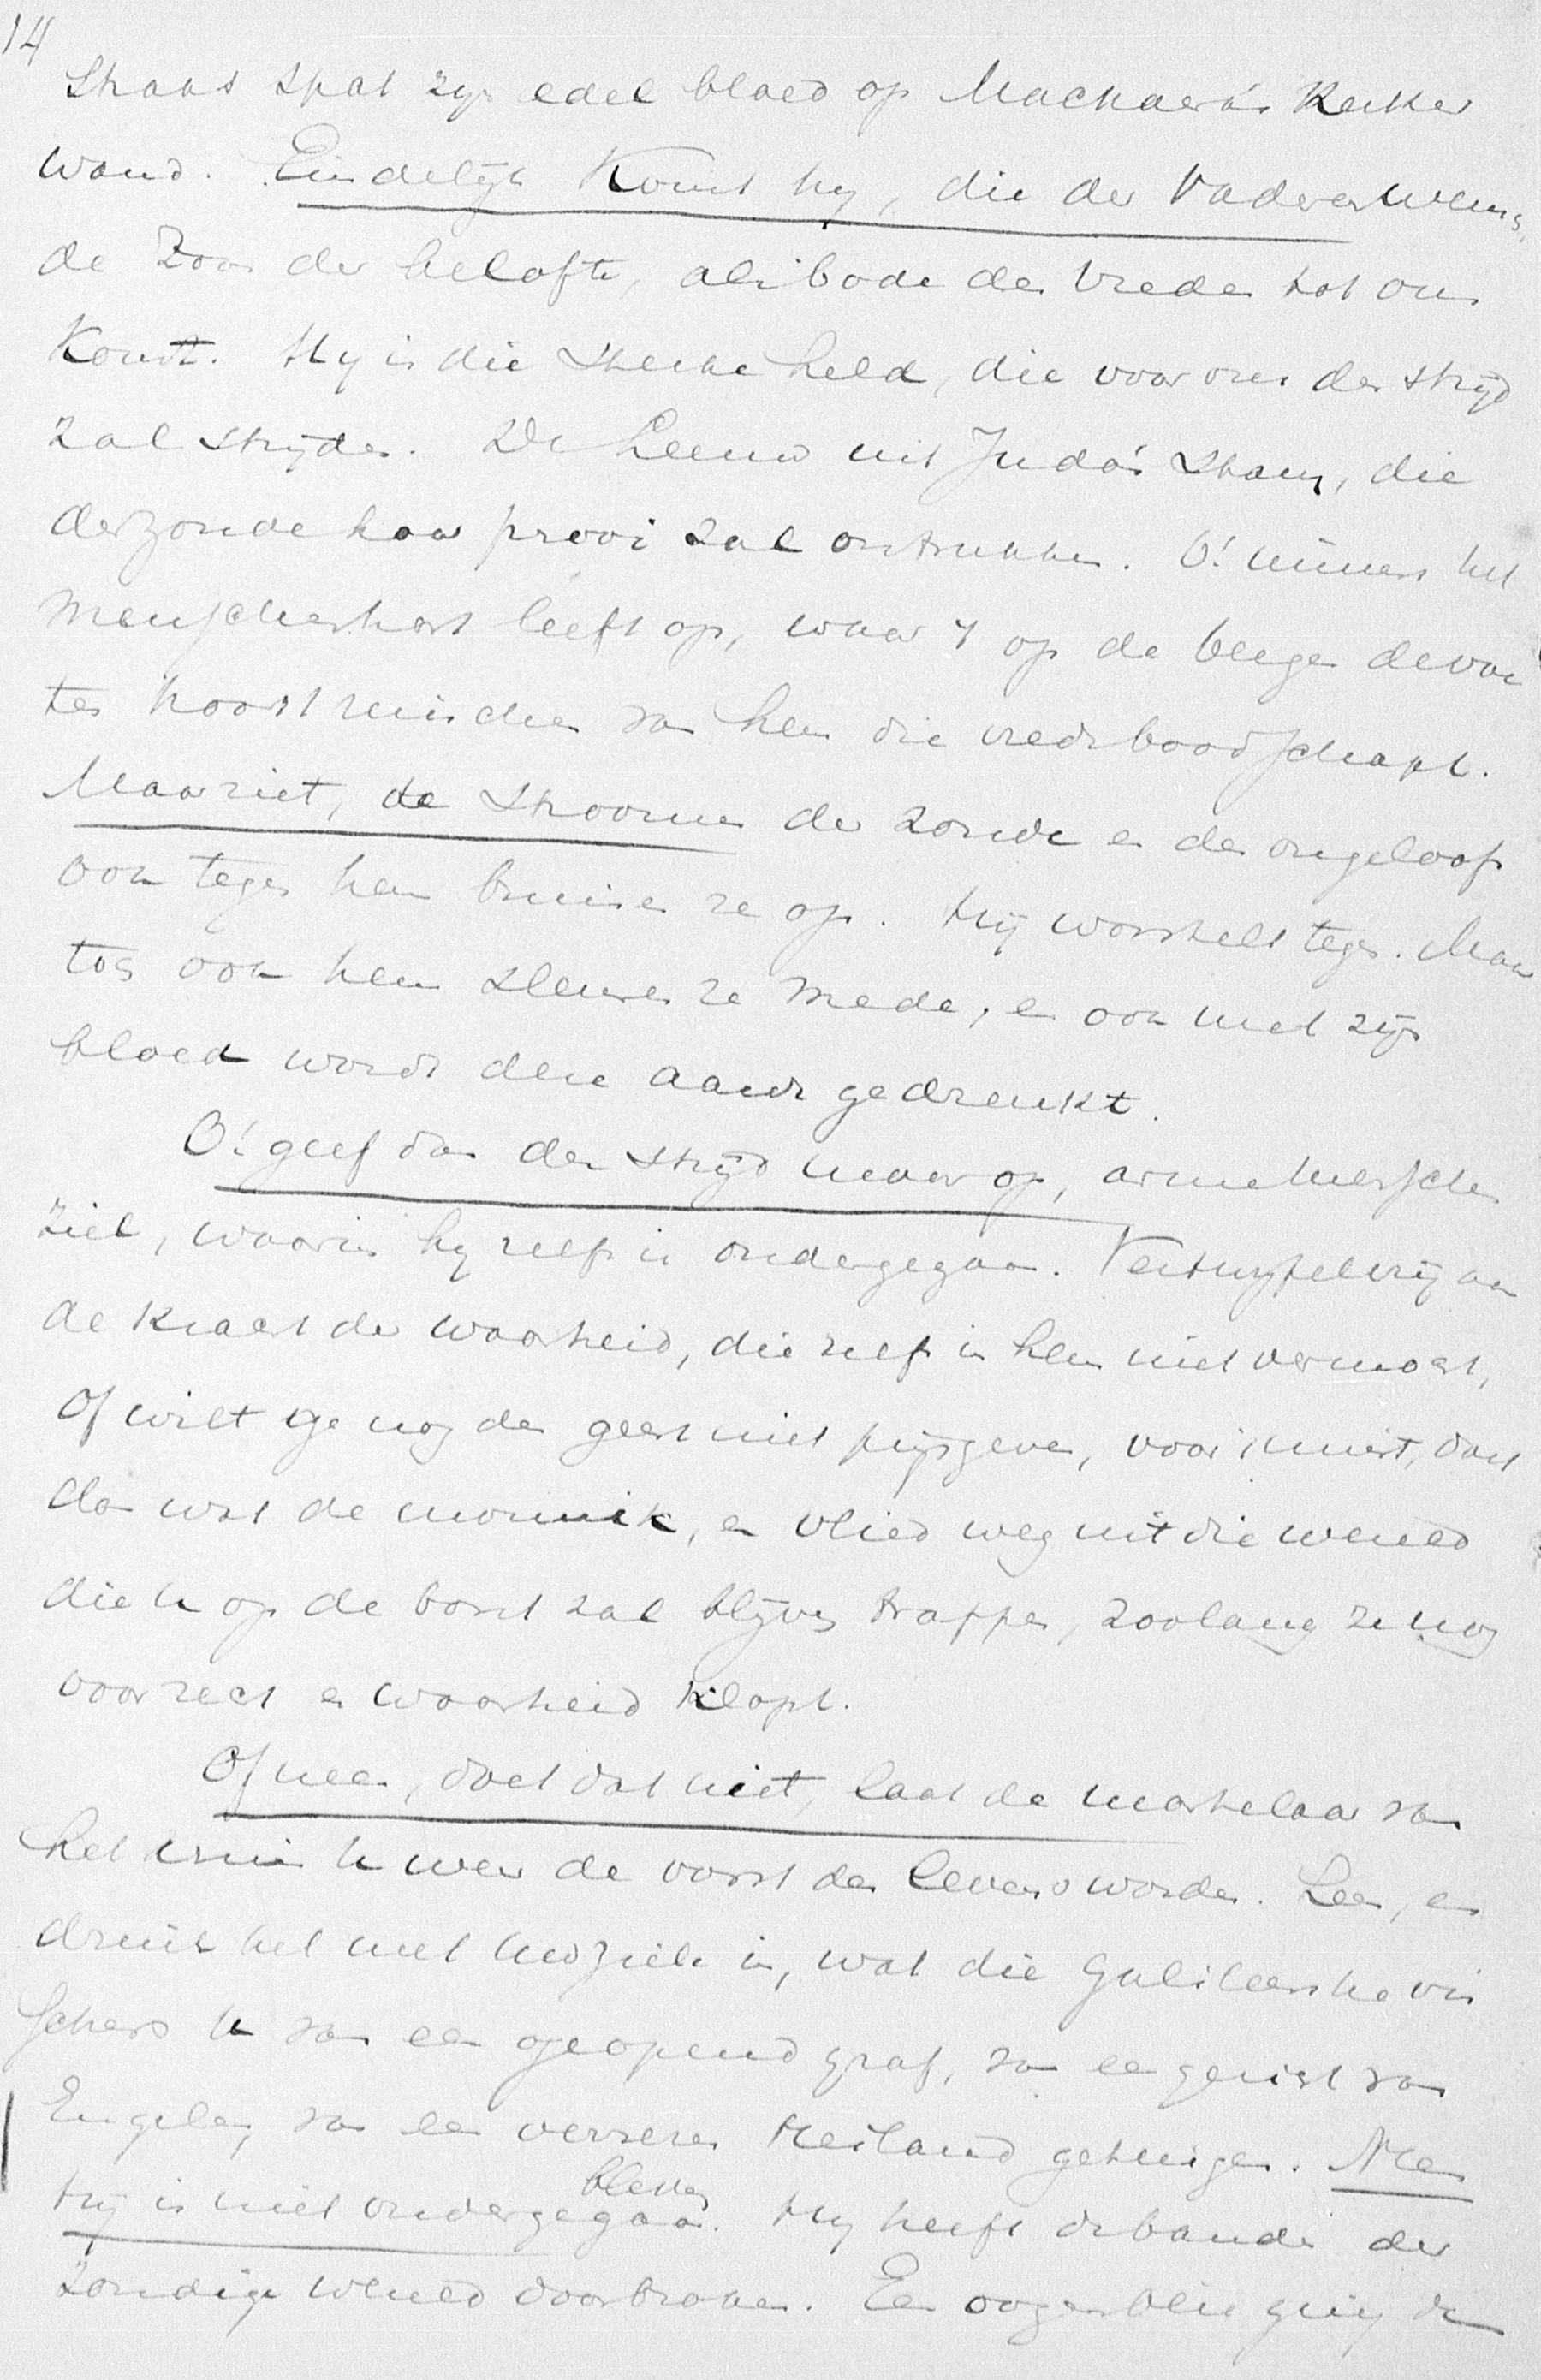 14
Straks spat zijn edel bloed op Machaera's Kerker
wand. Eindelijk Komt hy, die der Vaderen wensch,
de Zoon der belofte, als bode des Vredes tot ons
Komt. Hy is die sterke held, die voor ons den strijd
zal strijden. De Leeuw uit Juda's stam, die
der zonde haar prooi zal ontrukken. O! immers het
menschenhart leeft op, waar 't op de bergen de voe
ten hoort ruischen van hem die vrede boodschapt.
Maar ziet, de stroomen der zonde en des ongeloofs
ook tegen hem bruisen ze op. Hij worstelt tegen. Maar
toch ook hem sleuren ze mede, en ook met zijn
bloed wordt deze aarde gedrenkt.
O! geef dan den strijd maar op, arme menschen
ziel, waarin hy zelf is ondergegaan. Vertwijfel vrij aan
de kracht der waarheid, die zelf in hem niet vermocht,
Of wilt ge nog den geest niet prijsgeven, voor 't minst, doet
dan wat de monnik, en vlied weg uit die wereld
die u op de borst zal blijven trappen, zoolang ze nog
voor recht en waarheid klopt.
Of neen, doet dat niet, laat de martelaar van
het kruis u weer de vorst des levens worden. Lees, en
drink het met uw ziele in, wat die Galileesche vis
schers u van een geopend graf, van een gerucht van
Engelen, van een verrezen Heiland getuigen. Neen
bleven
Hij is niet ondergegaan. Hy heeft de banden der
zondige wereld doorbroken. Een oogenblik ging de